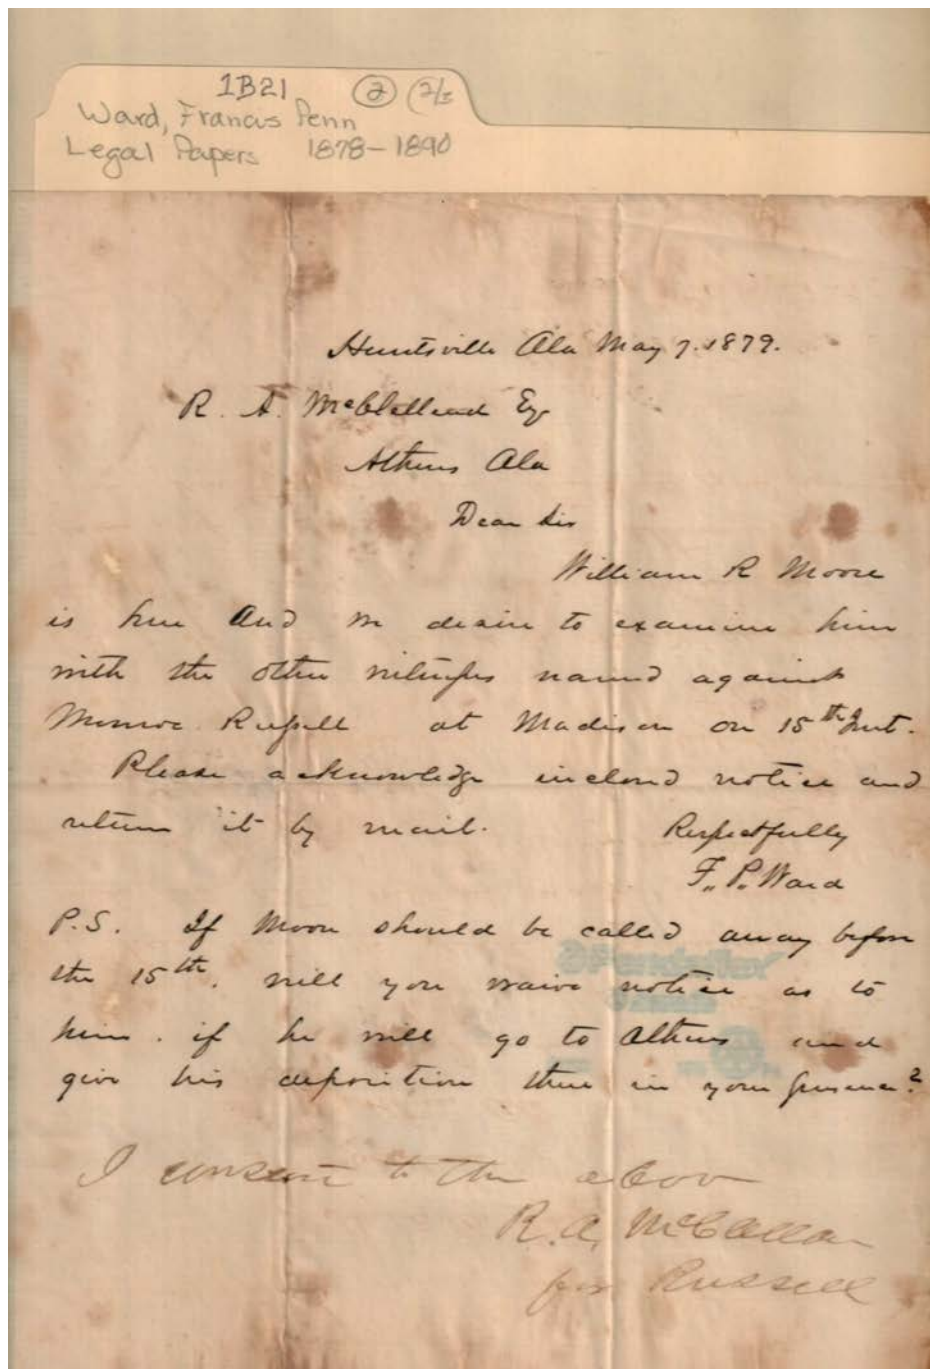 1B21 2 2/5
Ward, Francis Penn
Legal Papers 1878-1890
Huntsville Ala May 7. 1879.
R. A. McClelland Esq
Athens Ala
Dear Sir
William R Moore
is here and we desire to examine him
with the other witnesses named against
Monroe Russell at Madison on 15th Inst.
Please acknowledge inclosed notice and
return it by mail. Respectfully
F. P. Ward
P.S. If Moore should be called away before
the 15th, will you waive notice as to
him. if he will go to Athens and
give his deposition there in your presence?
I consent to the above
R. A. McClellan
for Russell